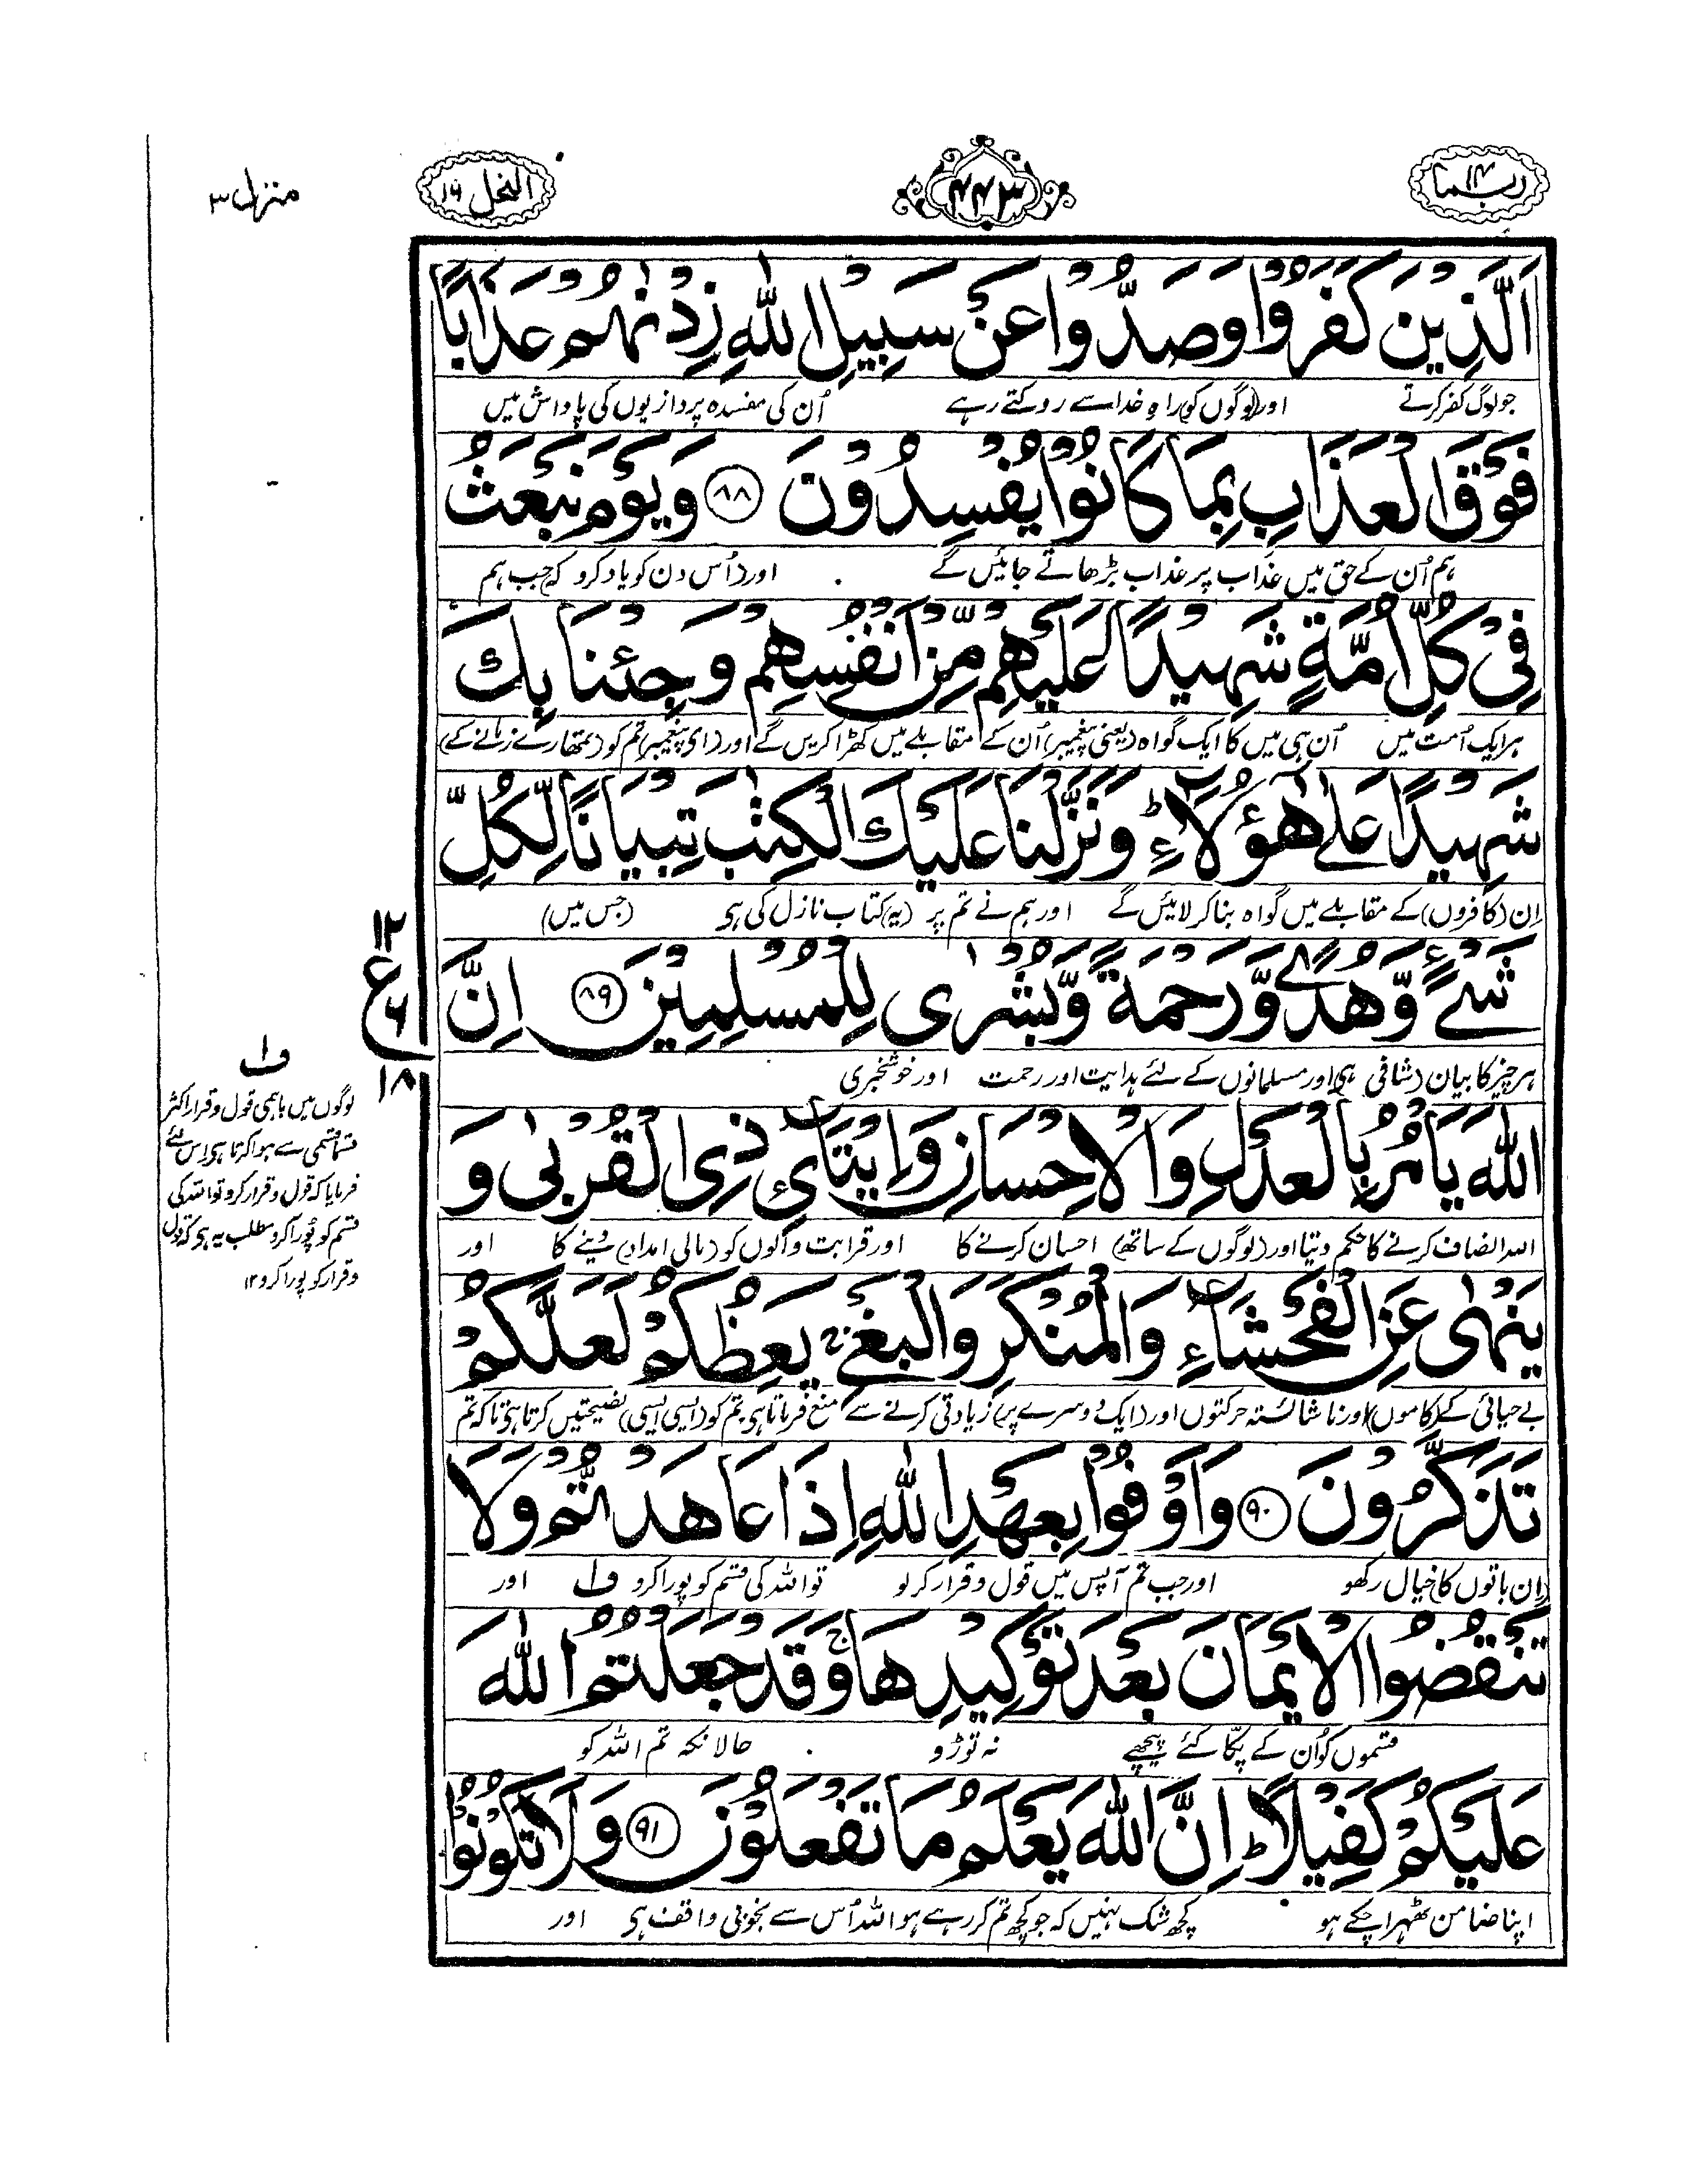 ربما ۱۴
۴۴۳
النحل ۱۶
منزل ۳
اَلَّذِیْنَ كَفَرُوْا وَصَدُّوْا عَنْ سَبِیْلِ اللّٰهِ زِدْنٰهُمْ عَذَابًا
جو لوگ کفر کرتے اور (لوگوں کو) راہِ خدا سے روکتے رہے اُن کی مفسدہ پردازیوں کی پاداش میں
فَوْقَ الْعَذَابِ بِمَا كَانُوْا یُفْسِدُوْنَ ﴿۸۸﴾ وَیَوْمَ نَبْعَثُ
ہم اُن کے حق میں عذاب پر عذاب بڑھاتے جائیں گے اور (اُس دن کو یاد کرو) کہ جب ہم
فِیْ كُلِّ اُمَّةٍ شَهِیْدًا عَلَیْهِمْ مِّنْ اَنْفُسِهِمْ وَجِئْنَا بِكَ
ہر ایک اُمت میں اُن ہی میں کا ایک گواہ (یعنی پیغمبر) اُن کے مقابلے میں کھڑا کریں گے اور (ای پیغمبر) تم کو (تمھارے زمانے کے)
شَهِیْدًا عَلٰی هٰۤؤُلَآءِ ؕ وَنَزَّلْنَا عَلَیْكَ الْكِتٰبَ تِبْیَانًا لِّكُلِّ
اِن (کافروں) کے مقابلے میں گواہ بنا کر لائیں گے اور ہم نے تم پر (یہ) کتاب نازل کی ہی (جس میں)
شَیْءٍ وَّهُدًی وَّرَحْمَةً وَّبُشْرٰی لِلْمُسْلِمِیْنَ ﴿۸۹﴾ اِنَّ
ہر چیز کا بیان (شافی) ہی اور مسلمانوں کے لئے ہدایت اور رحمت اور خوشخبری
اللّٰهَ یَاْمُرُ بِالْعَدْلِ وَالْاِحْسَانِ وَاِیْتَآئِ ذِی الْقُرْبٰی وَ
اللہ انصاف کرنے کا حکم دیتا اور (لوگوں کے ساتھ) احسان کرنے کا اور قرابت والوں کو (مالی امداد) دینے کا اور
یَنْهٰی عَنِ الْفَحْشَآءِ وَالْمُنْكَرِ وَالْبَغْیِ ۚ یَعِظُكُمْ لَعَلَّكُمْ
بے حیائی کے (کاموں) اور ناشائستہ حرکتوں اور (ایک دوسرے پر) زیادتی کرنے سے منع فرماتا ہی تم کو (ایسی ایسی) نصیحتیں کرتا ہی تا کہ تم
تَذَكَّرُوْنَ ﴿۹۰﴾ وَاَوْفُوْا بِعَهْدِ اللّٰهِ اِذَا عَاهَدْتُّمْ وَلَا
(اِن باتوں کا) خیال رکھو اور جب تم آپس میں قول و قرار کر لو تو اللہ کی قسم کو پورا کرو ف۱ اور
تَنْقُضُوا الْاَیْمَانَ بَعْدَ تَوْكِیْدِهَا وَقَدْ جَعَلْتُمُ اللّٰهَ
قسموں کو اُن کے پکّا کئے پیچھے نہ توڑو حالانکہ تم اللہ کو
عَلَیْكُمْ كَفِیْلًا ؕ اِنَّ اللّٰهَ یَعْلَمُ مَا تَفْعَلُوْنَ ﴿۹۱﴾ وَلَا تَكُوْنُوْا
اپنا ضامن ٹھہرا چکے ہو کچھ شک نہیں کہ جو کچھ تم کر رہے ہو اللہ اُس سے بخوبی واقف ہی اور
۱۲
ع
۶
۱۸
ف۱
لوگوں میں باہمی قول و قرار اکثر
قسما قسمی سے ہوا کرتا ہی اِس لئے
فرمایا کہ قول و قرار کرو تو اللہ کی
قسم کو پورا کرو مطلب یہ ہی کہ قول
و قرار کو پورا کرو ۱۲